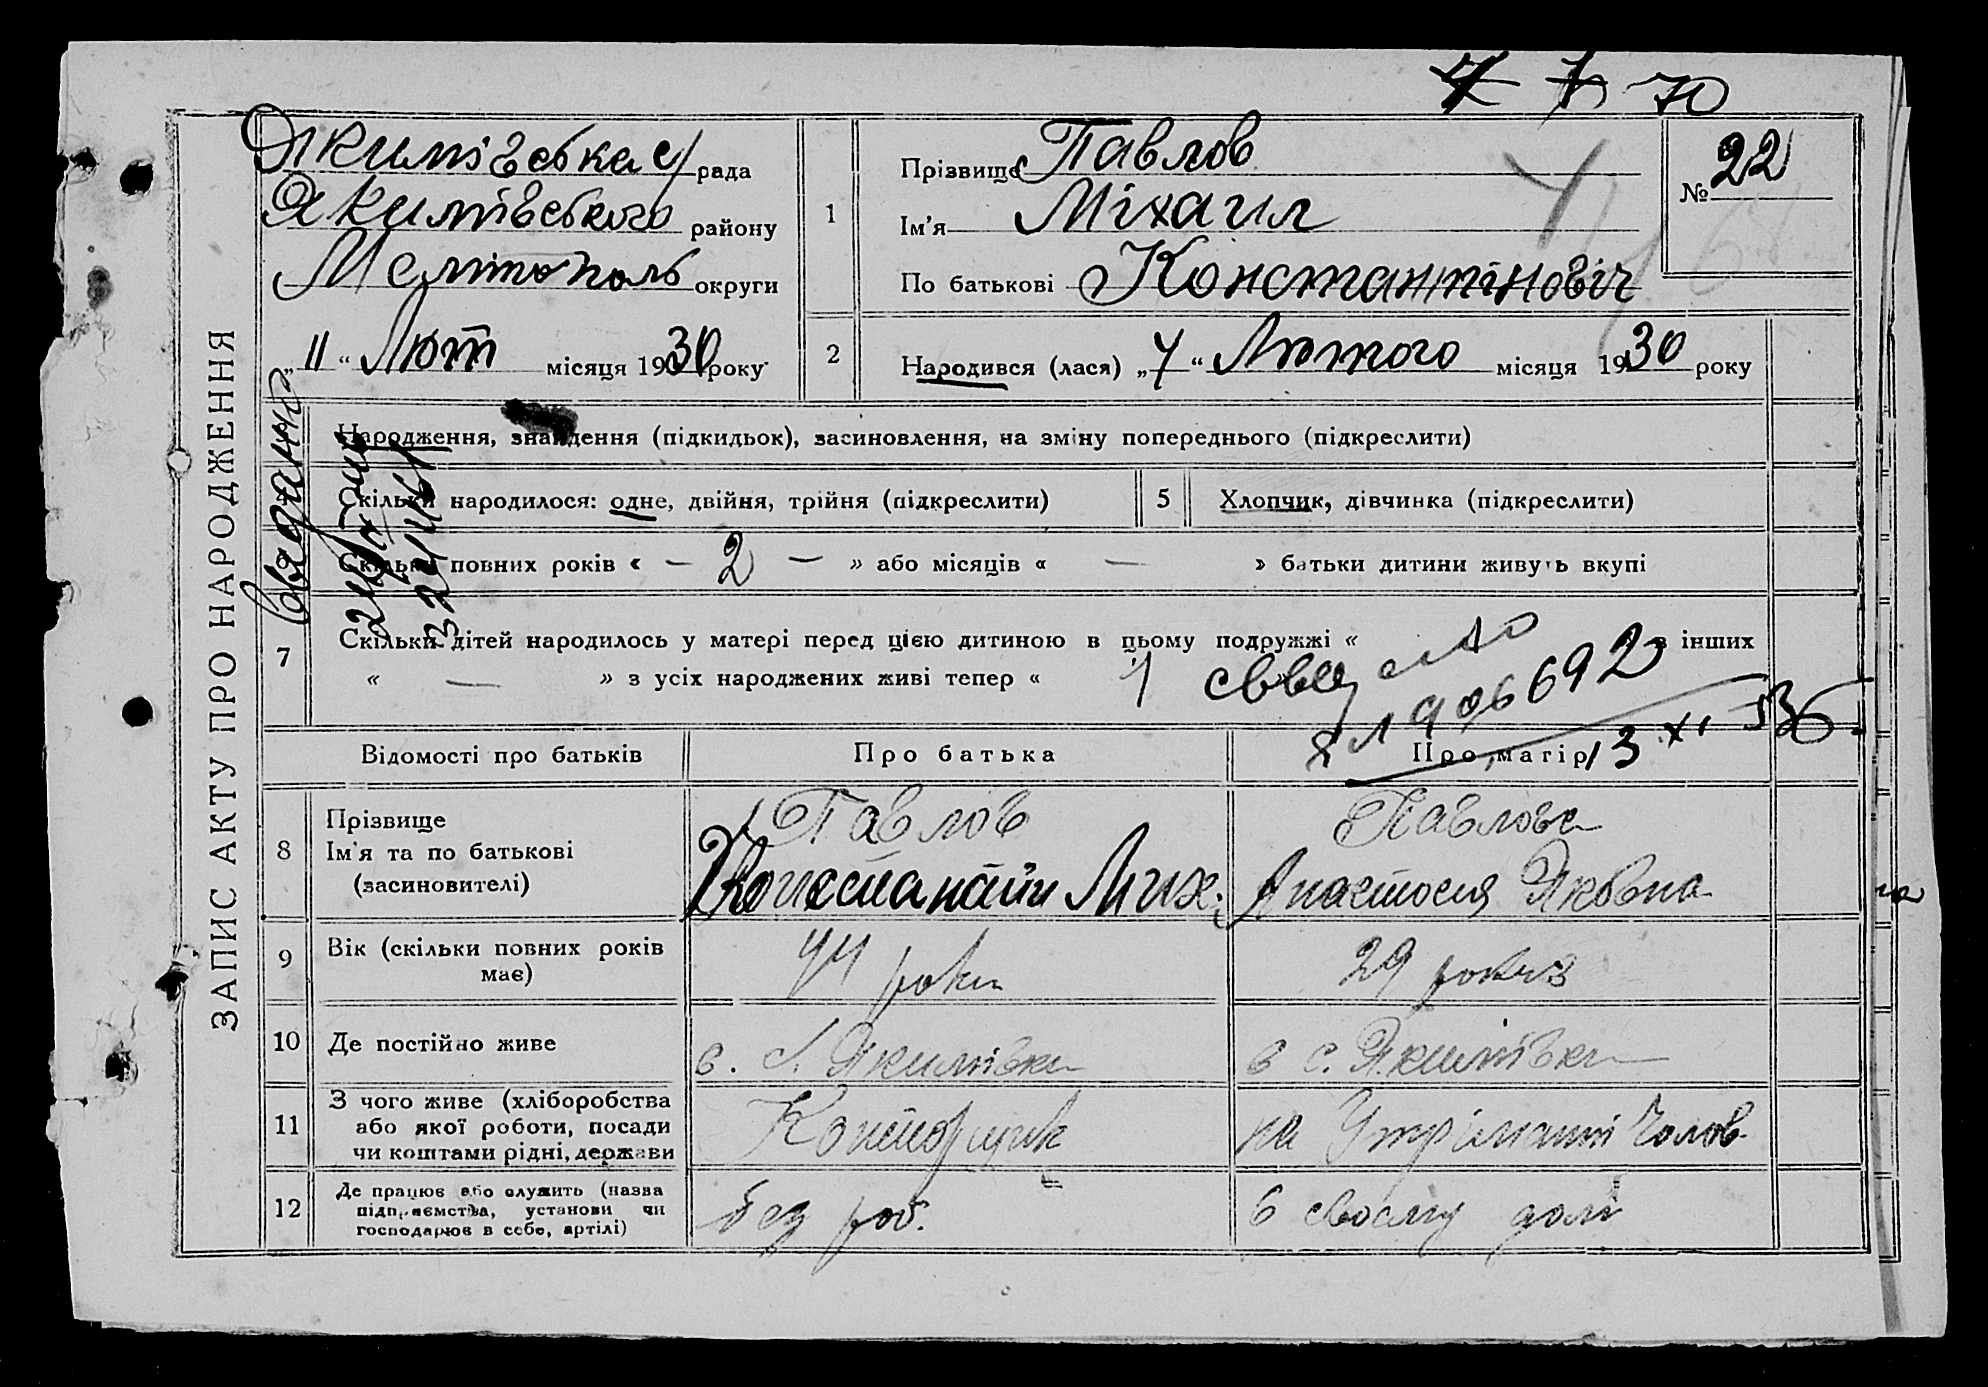 70
ЗАПИС АКТУ ПРО НАРОДЖЕННЯ
Якимівська с/рада
Якимівського району
Мелітополь округи
„11“ Лют місяця 1930 року
1
Прізвище Павлов
Ім'я Міхаил
По батькові Константіновіч
№ 22
2
Народився (лася) „4“ Лютого місяця 1930 року
Народження, знайдення (підкидьок), засиновлення, на зміну попереднього (підкреслити)
Скільки народилося: одне, двійня, трійня (підкреслити)
5
Хлопчик, дівчинка (підкреслити)
Скільки повних років « — 2 — » або місяців « — » батьки дитини живуть вкупі
7
Скільки дітей народилось у матері перед цією дитиною в цьому подружжі « з інших
« — » з усіх народжених живі тепер « 1
13 XI
Відомості про батьків
Про батька
Про матір
8
Прізвище
Ім'я та по батькові
(засиновителі)
Павлов
Константин Мих.
Павлова
Анастосия Яковна
9
Вік (скільки повних років
має)
44 роки
29 років
10
Де постійно живе
в. с. Якимівки
в с. Якимівки
11
З чого живе (хліборобства
або якої роботи, посади
чи коштами рідні, держави
Конторщик
на Утріманні Чолов.
12
Де працює або служить (назва
підприємства, установи чи
господарює в себе, артілі)
без роб.
в своему домі